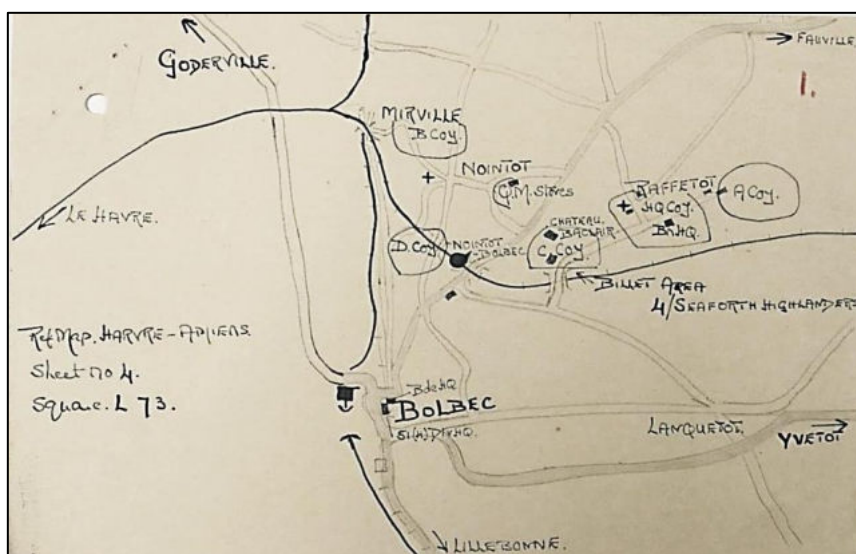 GODERVILLE.
FAUVILLE.
1.
MIRVILLE
B COY.
NOINTOT
Q.M. Stores
RAFFETOT
HQ COY.
BN HQ.
A COY.
CHATEAU
BACLAIR
C. COY
D. COY
NOINTOT
-BOLBEC
LE HAVRE.
BILLET AREA
4/SEAFORTH HIGHLANDERS
Ref Map. HARVRE-AMIENS.
Sheet no 4.
Square. L 73.
Bde HQ
BOLBEC
51(H) DIV HQ.
LANQUETOT.
YVETOT
LILLEBONNE.